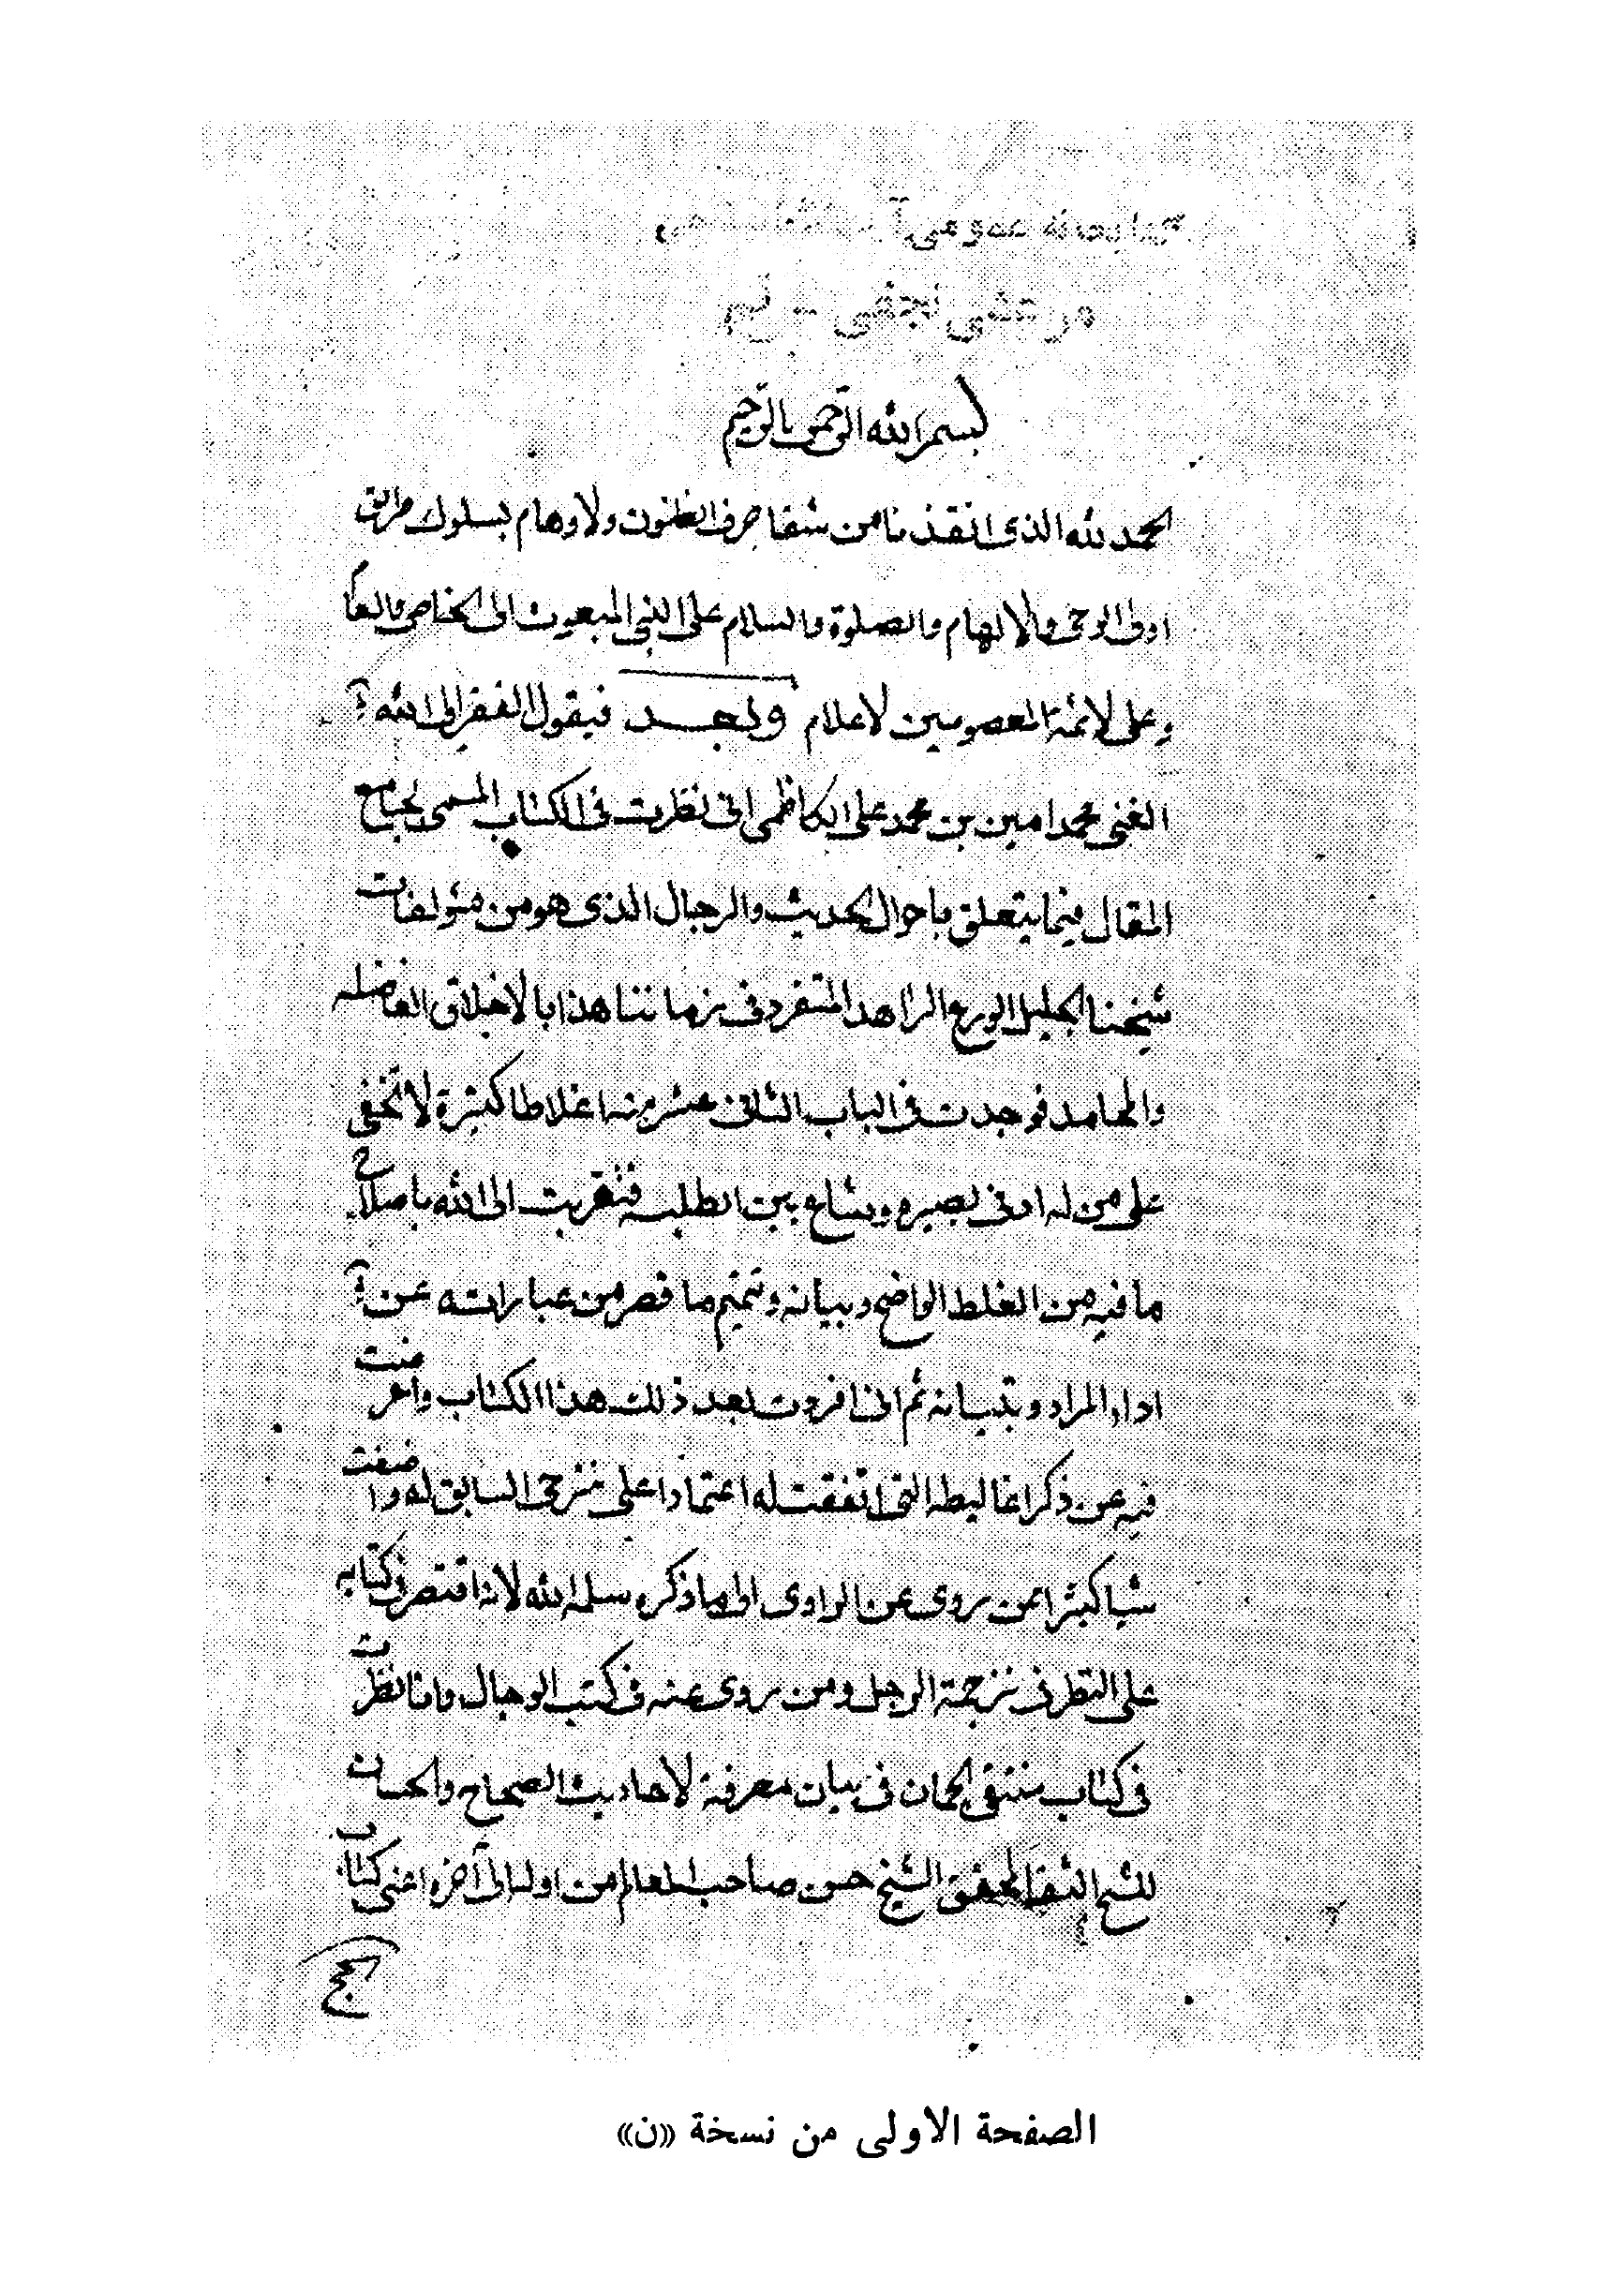 كتابخانه عمومى آيت
مرعشى نجفى - قم
بسم الله الرحمن الرحيم
الحمد لله الذى انقذنا من شفا جرف الظنون ولاوهام بسلوك طريق
اولى الوحى والالهام والصلوة والسلام على النبى المبعوث الى الخاص والعا
وعلى لائمة المعصومين لاعلام وبعد فيقول الفقر الى الله
الغنى محمد امين بن محمد على الكاظمى انى نظرت فى الكتاب المسمى بجامع
المقال فيما يتعلق باحوال الحديث والرجال الذى هو من مؤلفات
شيخنا الجليل الورع الزاهد المتفرد فى زماننا هذا بالاخلاق الفاضله
والمحامد فوجدت فى الباب الثانى عشر منه اغلاطا كثيرة لا تخفى
على من له ادنى بصيره وشاع بين الطلبه فتقربت الى الله باصلاح
ما فيه من الغلط الواضح وبيانه وتتميم ما قصر من عباراته عن
اداء المراد وتبيانه ثم انى افردت بعد ذلك هذا الكتاب واعرضت
فيه عن ذكر اغاليطه التى اتفقت له اعتمادا على شرحى السابق له واضفت
شيا كثيرا ممن روى عن الراوى الى ما ذكره سلمه الله لانه اقتصر فى كتابه
على النظر فى ترجمة الرجل ومن روى عنه فى كتب الرجال وانا نظرت
فى كتاب منتقى الجمان فى بيان معرفة لاحاديث الصحاح والحسان
للشيخ الثقة المحقق الشيخ حسن صاحب المعالم من اوله الى آخره اعنى كتاب
الحج
الصفحة الاولى من نسخة «ن»